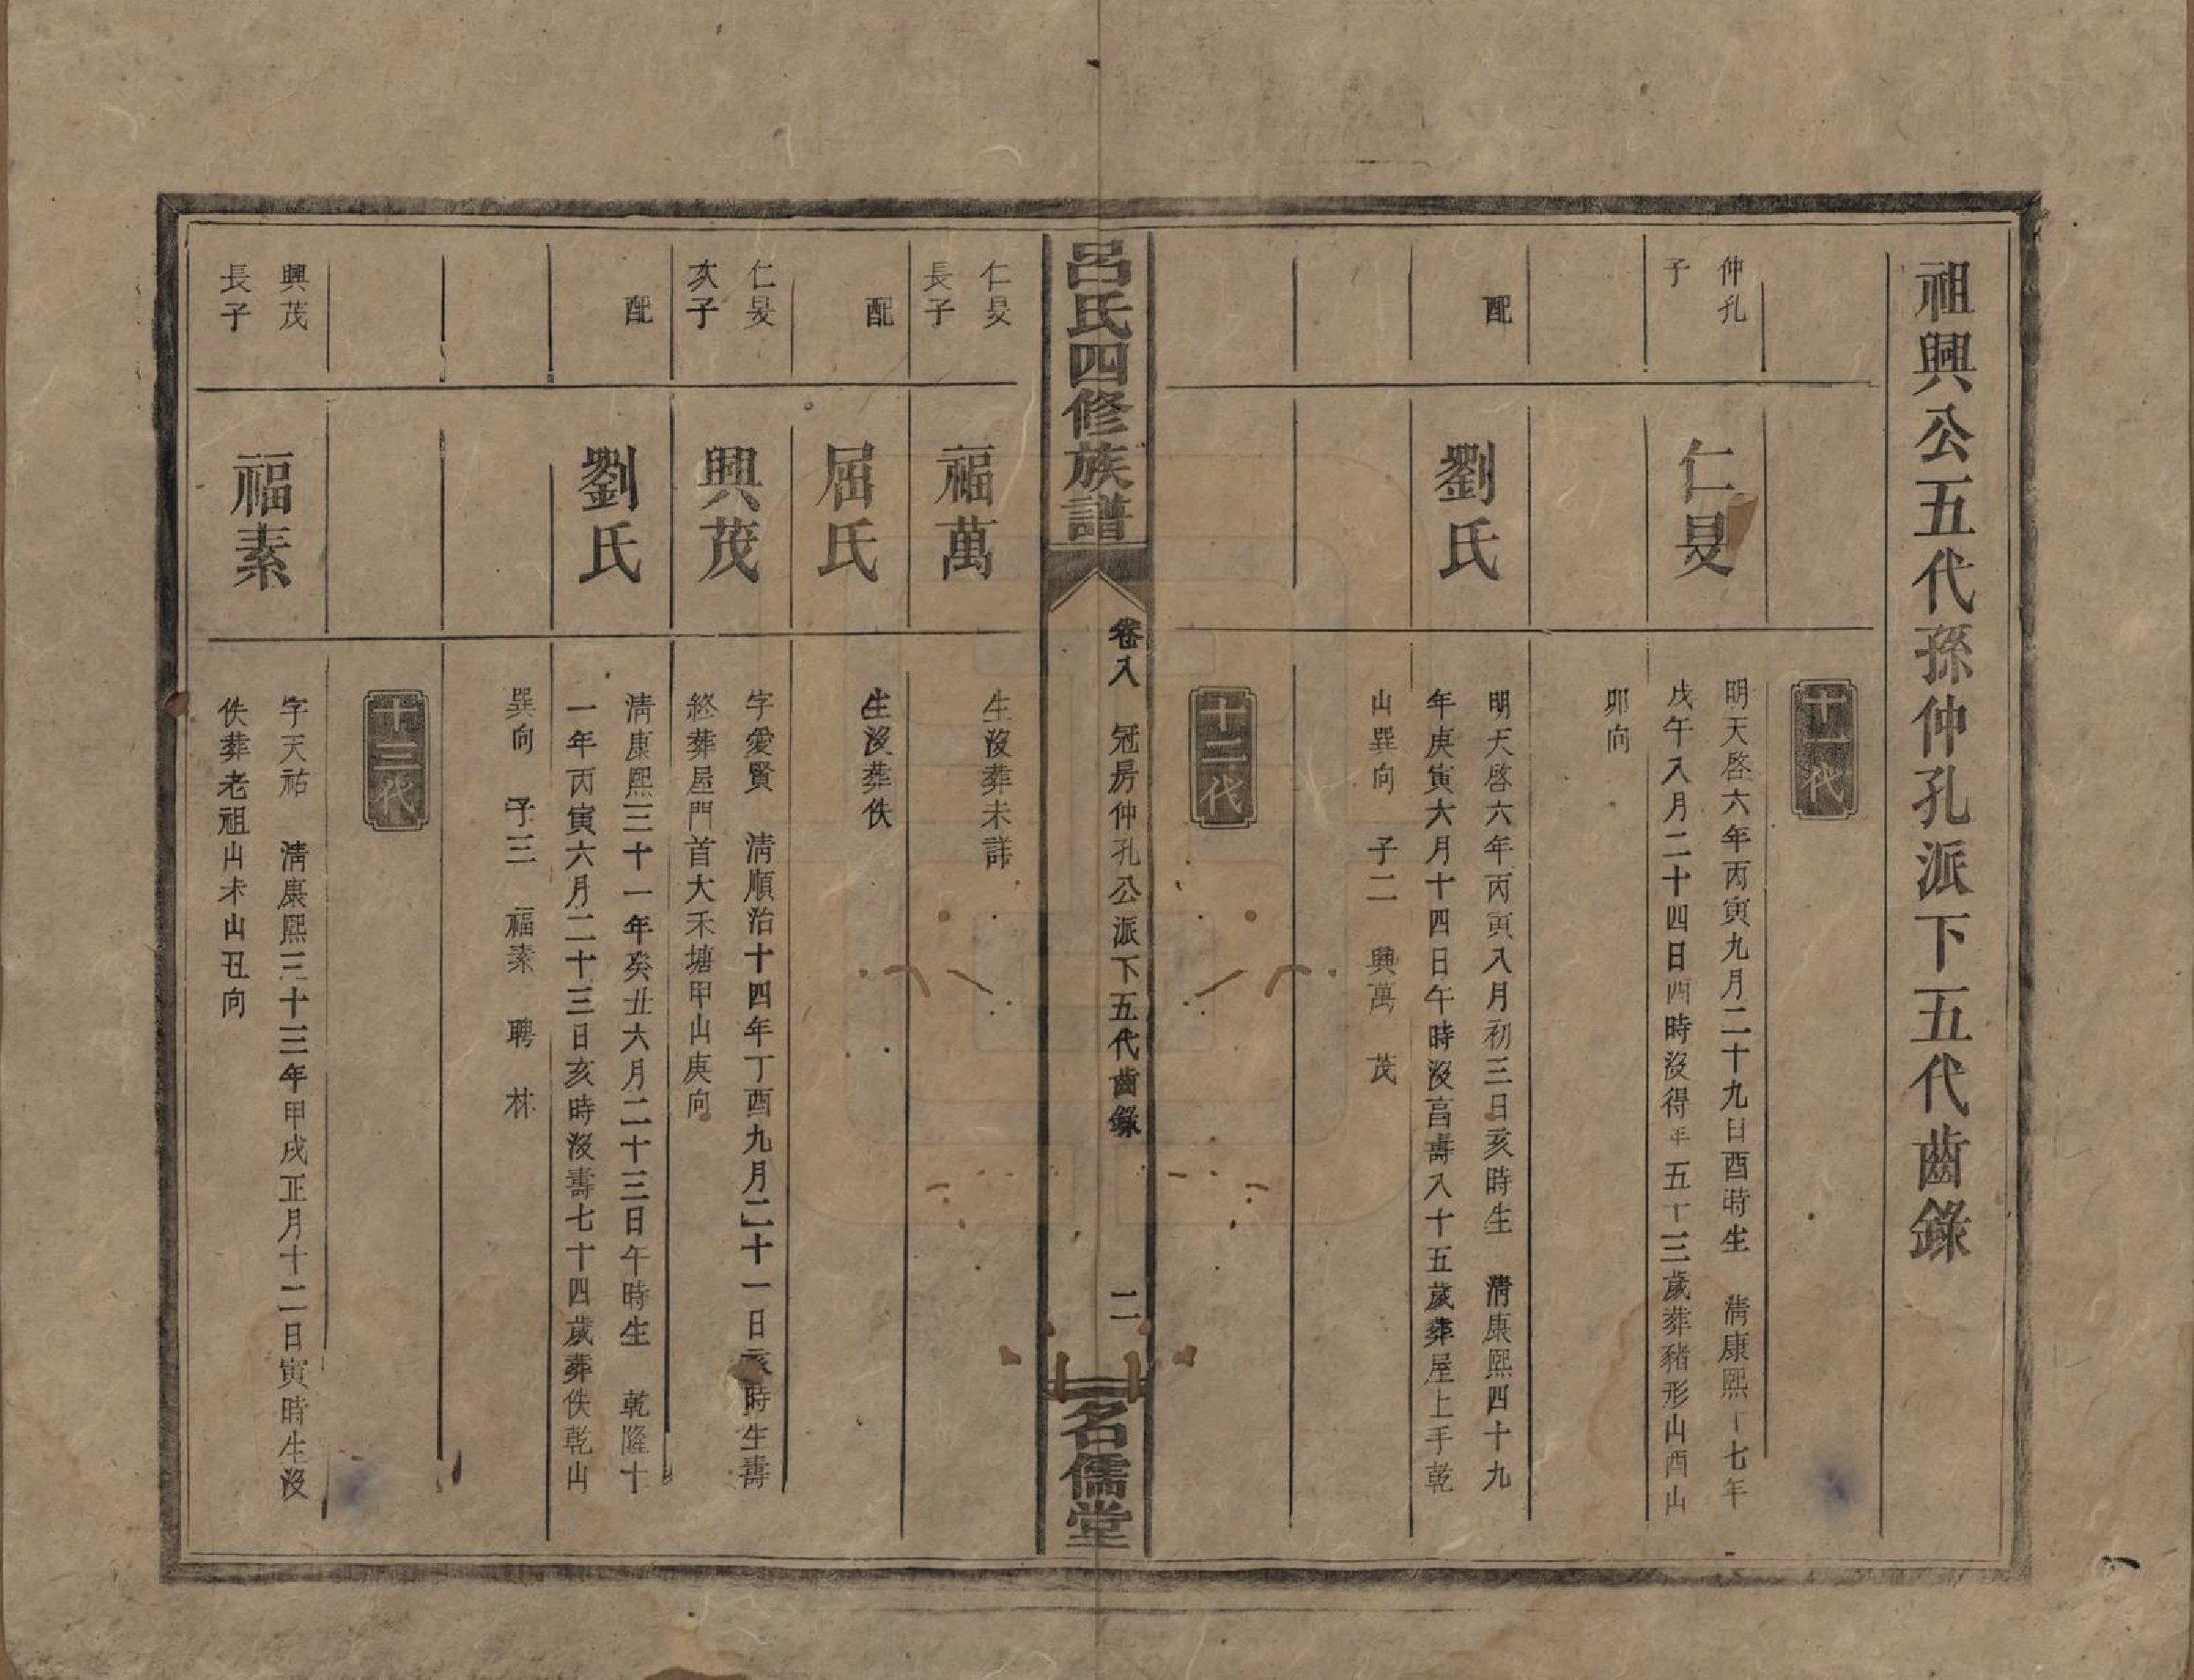 祖興公五代孫仲孔派下五代齒錄
十一代
仲孔
子
仁旻
明天啓六年丙寅九月二十九日酉時生　清康熙十七年
戊午八月二十四日酉時没得年五十三歲葬豬形山酉山
卯向
配
劉氏
明天啓六年丙寅八月初三日亥時生　清康熙四十九
年庚寅六月十四日午時没享壽八十五歲葬屋上手乾
山巽向　子二　興萬　茂
十二代
呂氏四修族譜
卷八　冠房仲孔公派下五代齒錄
二
名儒堂
仁旻
長子
福萬
生没葬未詳
配
屈氏
生没葬佚
仁旻
次子
興茂
字愛賢　清順治十四年丁酉九月二十一日亥時生壽
終葬屋門首大禾塘甲山庚向
配
劉氏
清康熙三十一年癸丑六月二十三日午時生　乾隆十
一年丙寅六月二十三日亥時没壽七十四歲葬佚乾山
巽向　子三　福素　聘　林
十三代
興茂
長子
福素
字天祐　清康熙三十三年甲戌正月十二日寅時生没
佚葬老祖山未山丑向